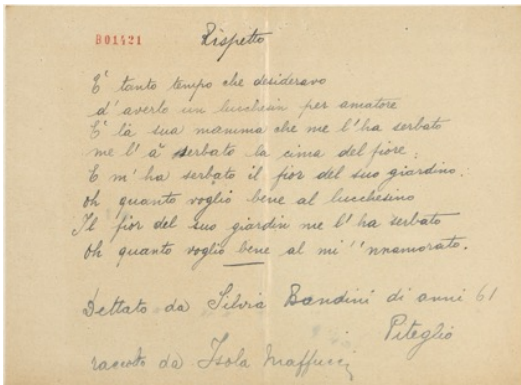 B01421
Rispetto
E' tanto tempo che desideravo
d'averlo un lucchesin per amatore
E' la sua mamma che me l'ha serbato
me l' à serbato la cima del fiore;
E m'ha serbato il fior del suo giardino:
Oh quanto voglio bene al lucchesino
Il fior del suo giardin me l'ha serbato
Oh quanto voglio bene al mi' 'nnamorato.
Dettato da Silvia Bandini di anni 61
Piteglio
raccolto da Isola Maffucci